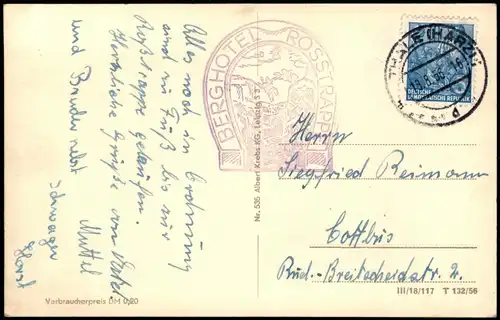 Alles noch in Ordnung
sind zu Fuß bis zur
Roßtrappe gelaufen.
Herzliche Grüße von Vater
Muttel
und Bruder nebst
Schwager
Horst
Verbraucherpreis DM 0,20
BERGHOTEL ROSSTRAPPE
Nr. 535 Albert Krebs KG, Leipzig S 3
THALE (HARZ)
DEUTSCHE
DEMOKRATISCHE REPUBLIK
Herrn
Siegfried Reimann
Cottbus
Rud.-Breitscheidstr. 2.
III/18/117 T 132/56